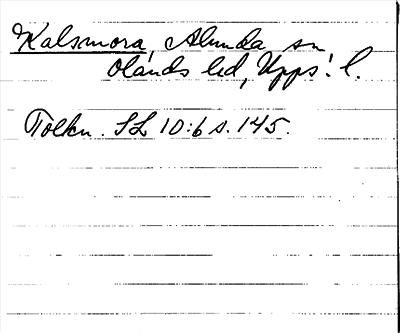 Kalsmora, Alunda sn
Olands hd, Upps. l.
Tolkn. SL 10:6 s. 145.